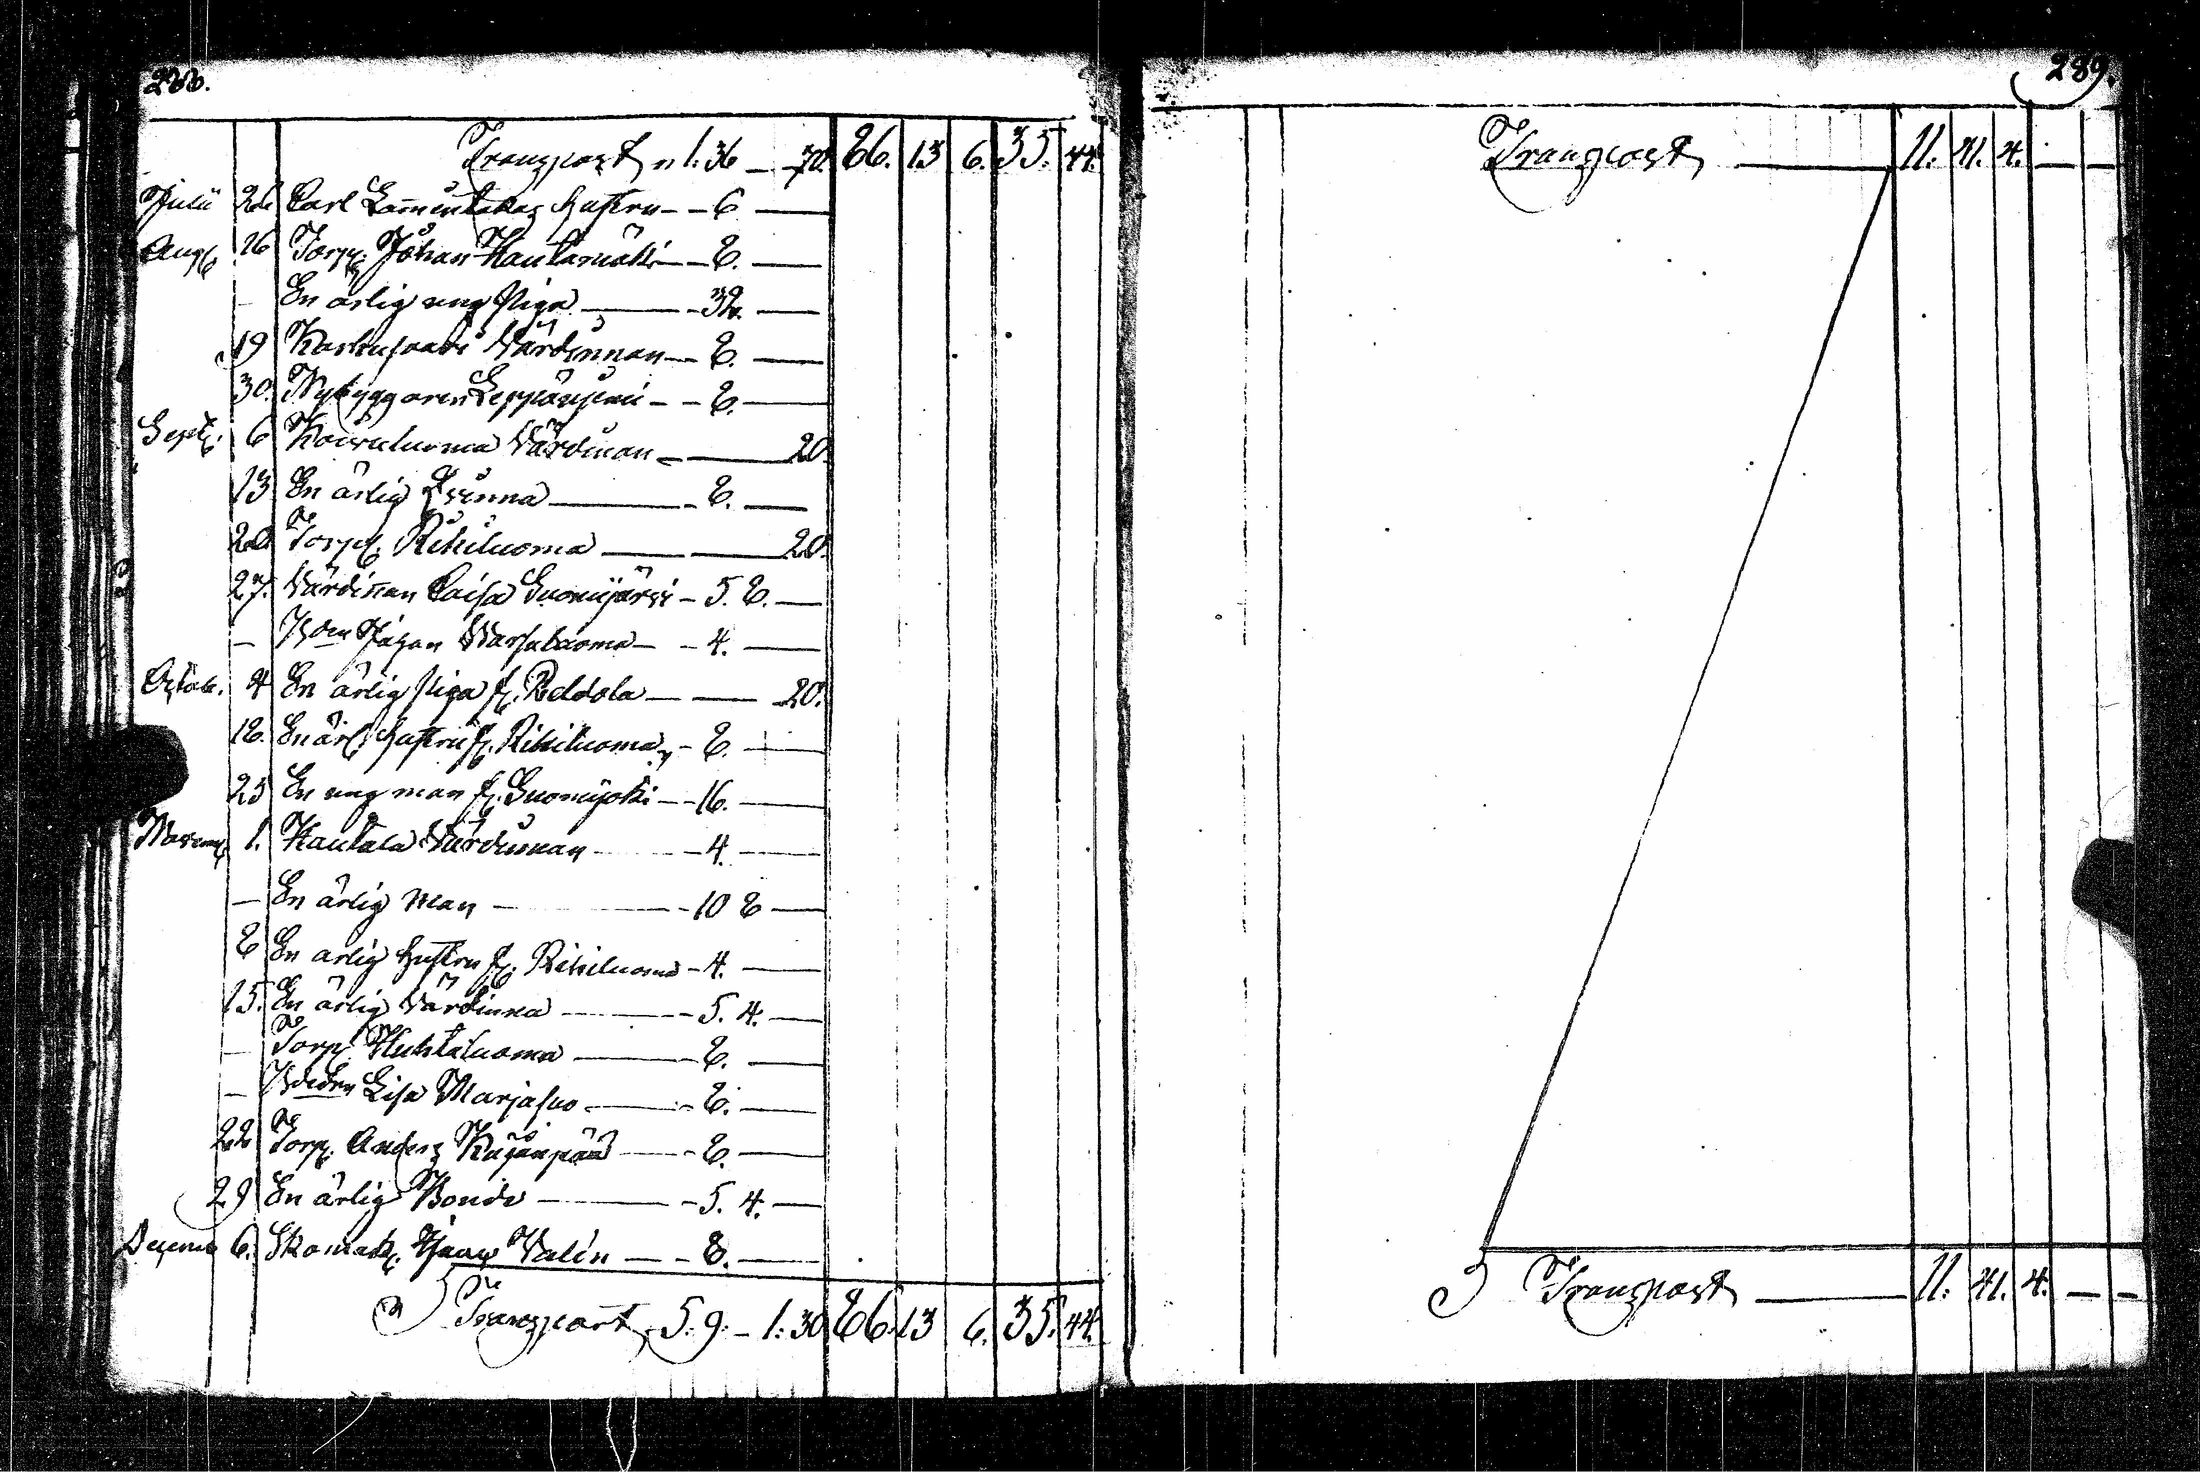 288.
Transport " 1: 36 — 86. 13 6. 35. 44.
Julii 26 Carl Lammintakas hustru — 6 —
Aug. 16 Torp. Johan Hautamäki — 8. —
— En ärlig ung Piga — 32. —
19 Värdinnan — 8. —
30. Nybyggaren Leppäniemi — 8. —
Sept. 6 Koivuluoma Värdinan — 20.
13 En ärlig Qvinna — 8. —
20 Torp. Rihiluoma — 20.
27. Värdinnan Caisa Suomijärvi — 5. 8. —
— Jågan — 4. —
Octob. 4 En ärlig Piga f. Peldola — 20.
18. En ärl. hustru f. Rihiluoma — 8. —
25 En ung man f. Suomijoki — 16. —
Novemb. 1. Hautala Värdinnan — 4. —
— En ärlig man — 10 8 —
8 En ärlig hustru f. Rihiluoma — 4. —
15. En ärlig Värdinna — 5. 4. —
— Torp. Huhtaluoma — 8. —
— Lisa Marjasuo — 8. —
22 Torp. Anders Kujanpää — 8. —
29 En ärlig Bonde — 5. 4. —
Decemb. 6. Skomak. Valin — 8. —
Transport 5: 9: — 1: 30 86. 13 6. 35. 44.
289.
Transport — 11. 41. 4. — —
Transport — 11. 41. 4. — —